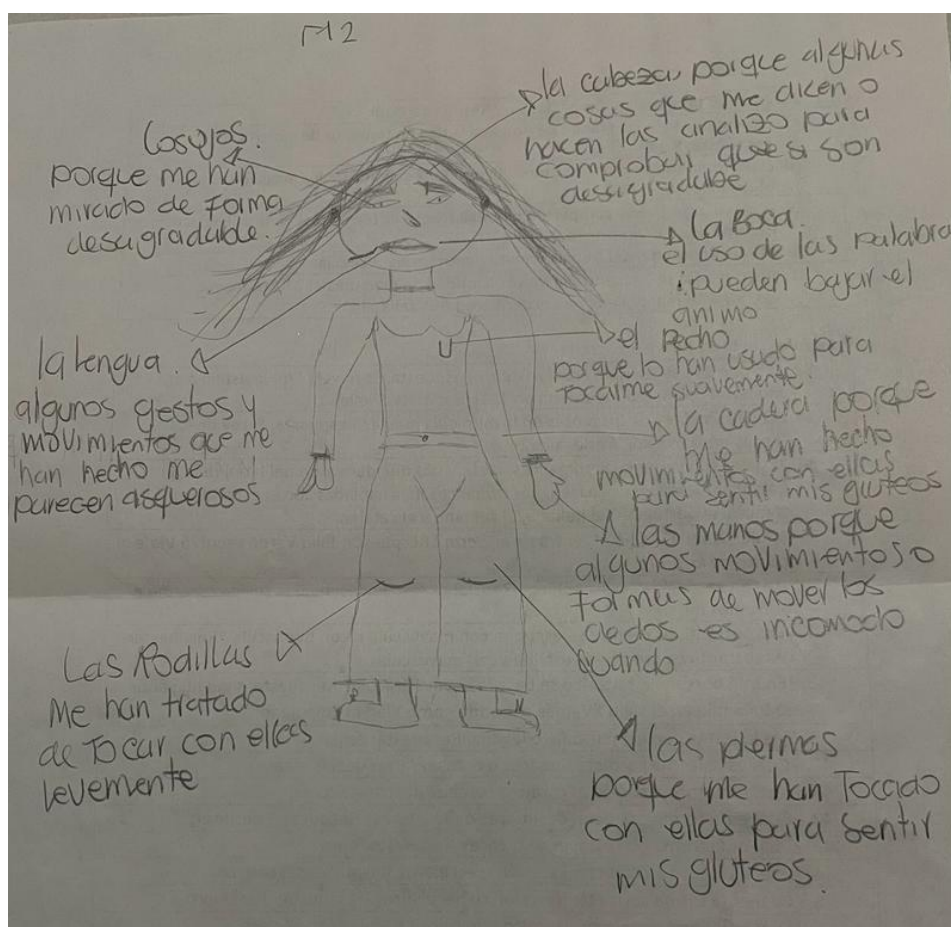 M2
Los ojos.
porque me han
mirado de forma
desagradable.
la cabeza, porque algunas
cosas que me dicen o
hacen las analizo para
comprobar que si son
desagradabe
la Boca.
el uso de las palabra
pueden bajar el
animo
el Pecho
porque lo han usado para
Tocarme suavemente.
la lengua.
algunos gestos y
movimientos que me
han hecho me
parecen asquerosos
la cadera porque
Me han hecho
movimientos con ellas
para sentir mis gluteos
las manos porque
algunos movimientos o
formas de mover los
dedos es incomodo
cuando
Las Rodillas
Me han tratado
de Tocar con ellas
levemente
las piernas
porque me han Tocado
con ellas para sentir
mis gluteos.